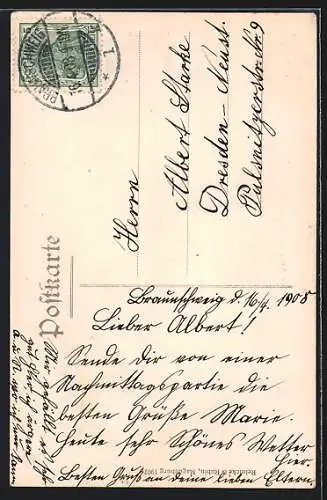 BRAUNSCHWEIG
1
Postkarte
Herrn
Albert Starke
Dresden-Neust.
Pulsnitzerstr. 9
Braunschweig d. 16/4. 1908
Lieber Albert!
Sende dir von einer
Nachmittagspartie die
besten Grüße Marie.
Heute sehr Schönes Wetter
hier.
Besten Gruss an deine lieben Eltern.
Mir gefällt es hier
gut
Magdeburg 190